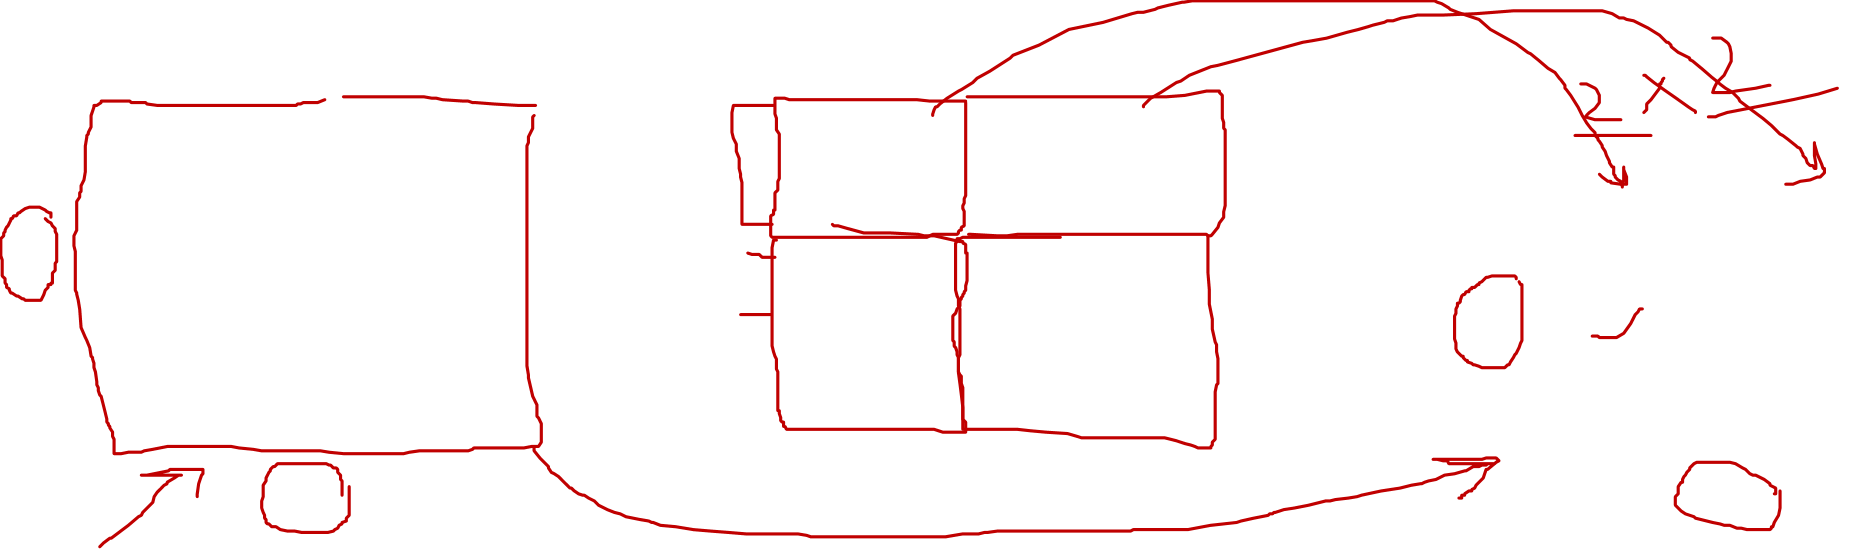 2 × 2